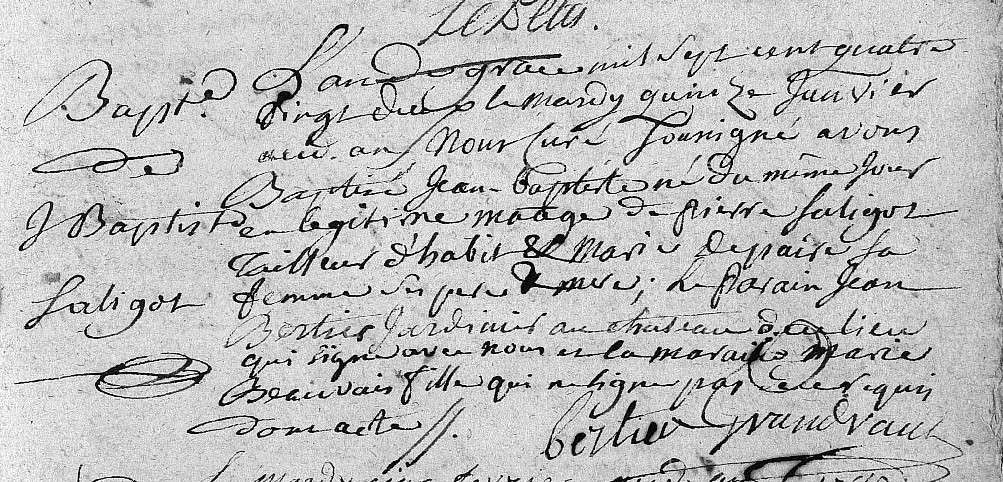 Bapt.e
de
J Baptiste
Saligot
L'an de grace mil sept cent quatre
vingt dix le mardy quinze Janvier
nous curé soussigné avons
Baptisé Jean-baptiste né du même jour
en legitime mariage de pierre Saligot
Tailleur d'habit & marie Depaire sa
femme ses pere & mere; le parain Jean
Bertier Jardinier au chateau de ce lieu
qui signe avec nous et la maraine marie
Beauvais fille qui ne signe pas de ce requis
dont acte //.
bertier grandvaut